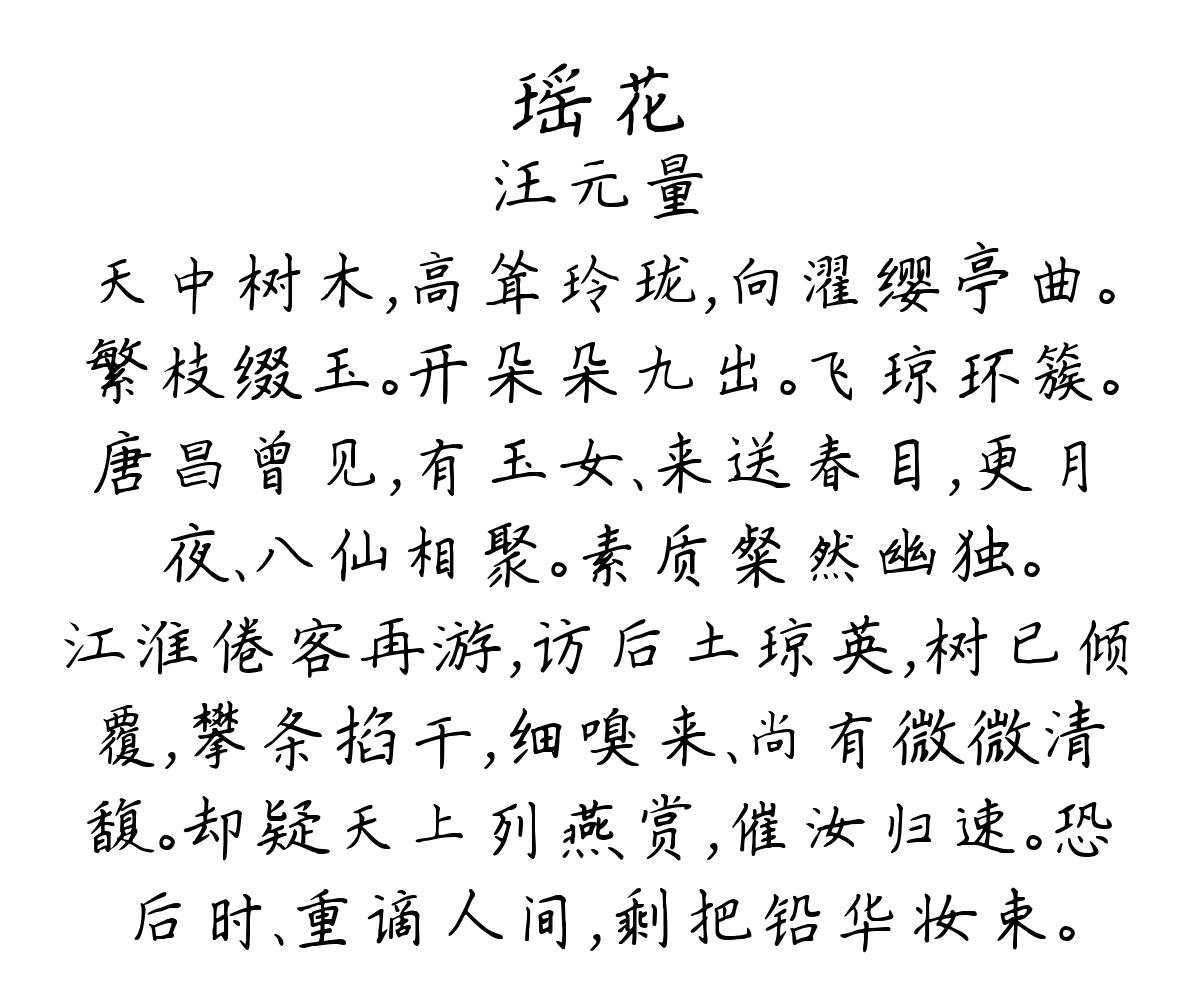 瑶花
汪元量
天中树木,高耸玲珑,向濯缨亭曲。
繁枝缀玉。开朵朵九出。飞琼环簇。
唐昌曾见,有玉女、来送春目,更月
夜、八仙相聚。素质粲然幽独。
江淮倦客再游,访后土琼英,树已倾
覆,攀条掐干,细嗅来、尚有微微清
馥。却疑天上列燕赏,催汝归速。恐
后时、重谪人间,剩把铅华妆束。